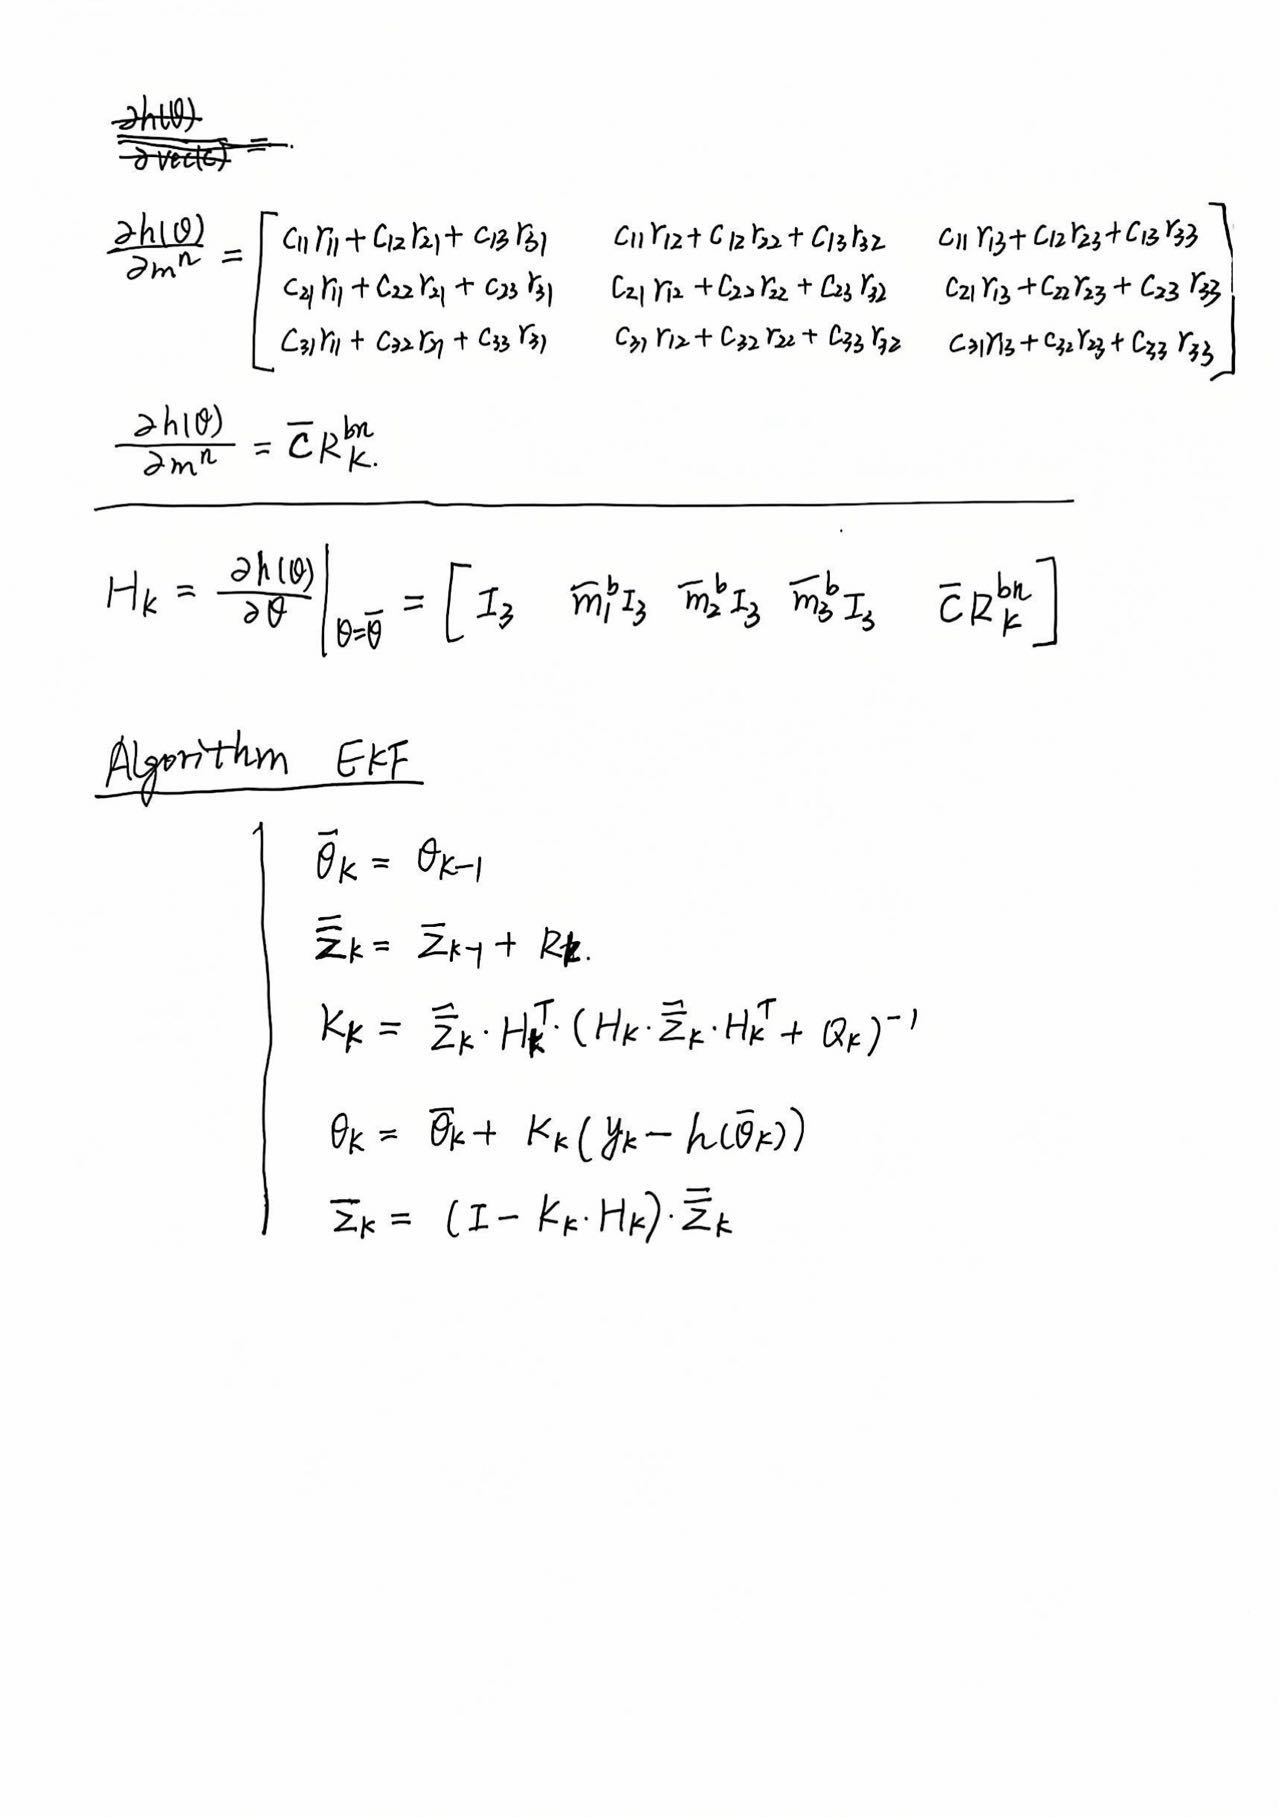 ∂h(θ)
∂vec(c) =
∂h(θ)/∂mⁿ = [ c₁₁r₁₁ + c₁₂r₂₁ + c₁₃r₃₁   c₁₁r₁₂ + c₁₂r₂₂ + c₁₃r₃₂   c₁₁r₁₃ + c₁₂r₂₃ + c₁₃r₃₃
c₂₁r₁₁ + c₂₂r₂₁ + c₂₃r₃₁   c₂₁r₁₂ + c₂₂r₂₂ + c₂₃r₃₂   c₂₁r₁₃ + c₂₂r₂₃ + c₂₃r₃₃
c₃₁r₁₁ + c₃₂r₂₁ + c₃₃r₃₁   c₃₁r₁₂ + c₃₂r₂₂ + c₃₃r₃₂   c₃₁r₁₃ + c₃₂r₂₃ + c₃₃r₃₃ ]
∂h(θ)/∂mⁿ = C̄ R_k^{bn}.
H_k = ∂h(θ)/∂θ |_{θ=θ̄} = [ I₃   m̄₁ᵇI₃   m̄₂ᵇI₃   m̄₃ᵇI₃   C̄R_k^{bn} ]
Algorithm EKF
θ̄_k = θ_{k-1}
Σ̄_k = Σ_{k-1} + R_k.
K_k = Σ̄_k · H_k^T · (H_k · Σ̄_k · H_k^T + Q_k)^{-1}
θ_k = θ̄_k + K_k(y_k − h(θ̄_k))
Σ_k = (I − K_k · H_k) · Σ̄_k